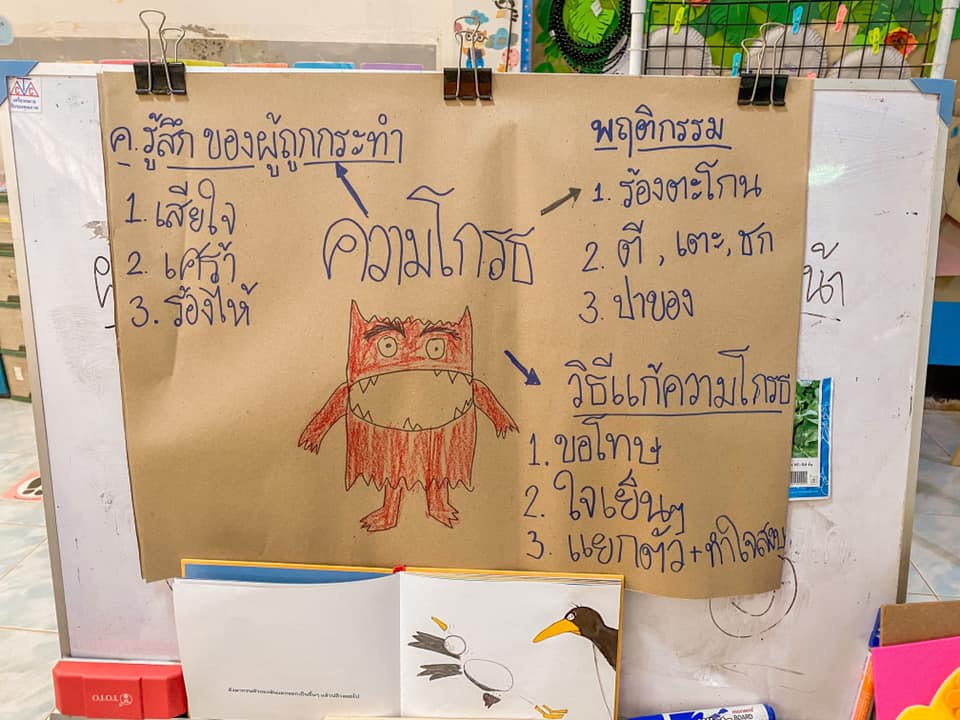 ค.รู้สึก ของผู้ถูกกระทำ
1. เสียใจ
2. เศร้า
3. ร้องไห้
ความโกรธ
พฤติกรรม
1. ร้องตะโกน
2. ตี , เตะ, ชก
3. ปาของ
วิธีแก้ความโกรธ
1. ขอโทษ
2. ใจเย็นๆ
3. แยกตัว+ทำใจสงบ
TOTO
BOARD